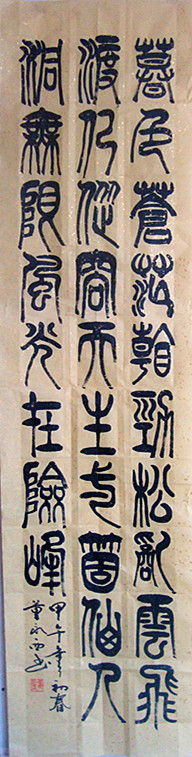 暮色蒼茫看勁松亂雲飛
渡仍從容天生一箇仙人
洞無限風光在險峰
甲午年初春
董